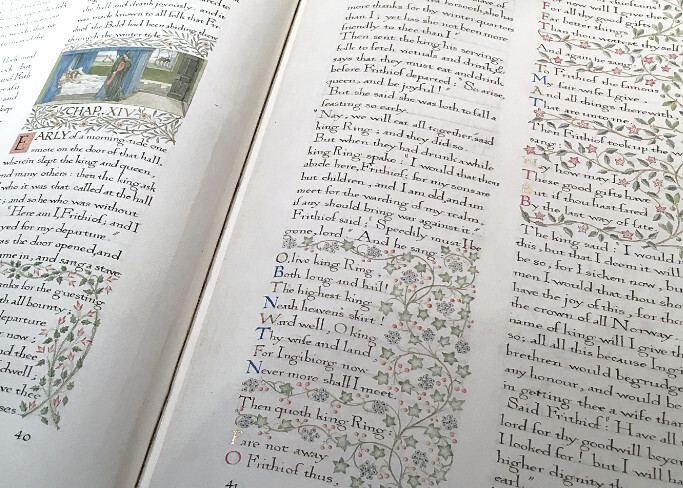 hall and drank joyously, and it
was made known to all folk that
had been abiding there
through the winter tide
CHAP. XIV
EARLY of a morning-tide one
smote on the door of that hall,
wherein slept the king and queen,
and many others: then the king asked
who it was that called at the hall
; and so he who was without
"Here am I, Frithiof; and I
for my departure."
was the door opened, and
came in, and sang a stave
thanks for the guesting
with all bounty;
departure
now;
thee
thee
40
more thanks for thy winter quarters
than I; yet has she not been more
friendly to thee than I."
Then sent the king his serving-
folk to fetch victuals and drink, &
says that they must eat and drink
before Frithiof departed. "So arise,
queen, and be joyful!"
But she said she was loth to fall a
feasting so early.
"Nay, we will eat all together," said
king Ring; and they did so.
But when they had drunk a while
king Ring spake: "I would that thou
abide here, Frithiof; for my sons are
but children, and I am old, and un
meet for the warding of my realm,
if any should bring war against it."
Frithiof said: "Speedily must I be
gone, lord." And he sang:
O, live king Ring,
Both long and hail!
The highest king
Neath heaven's skirt!
Ward well, O king
Thy wife and land
For Ingibiorg now
Never more shall I meet.
Then quoth king Ring:
Fare not away
O Frithiof thus,
41
now will I give thee
For all thy good
Far better things
Than thou wottest thyself
And again he sang:
To Frithiof the famous
My fair wife I give,
And all things therewith
That are unto me.
Then Frithiof took up the word
sang:
Nay how may I
These good gifts have
But if thou hast fared
By the last way of fate.
The king said: "I would
this, but that I deem it will
be so, for I sicken now, but
men I would that thou should
have the joy of this, for thou
the crown of all Norway.
name of king will I give thee
so; all all this because Ingi
brethren would begrudge
any honour, and would be
in getting thee a wife than
Said Frithiof: "Have all
lord for thy goodwill beyond
I looked for! but I will have
higher dignity than
earl."